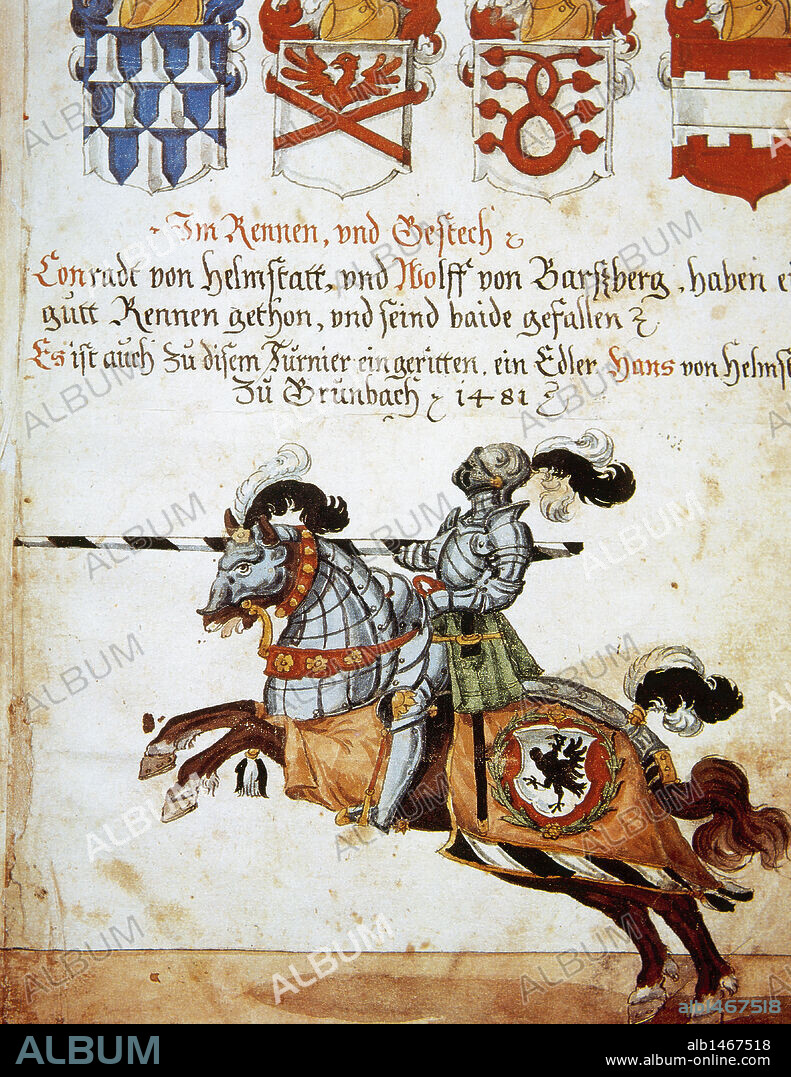 Im Rennen, vnd Gestech
Conradt von Helmstatt, vnd Wolff von Barßberg, haben ei
gutt Rennen gethon, vnd seind baide gefallen
Es ist auch zu disem Turnier eingeritten, ein Edler Hans von Helmst
Zu Grunbach 1481
alb1467518
ALBUM
alb1467518
www.album-online.com